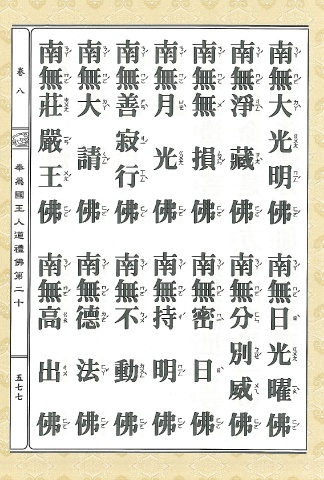 南無大光明佛 南無日光曜佛
南無淨藏佛 南無分別威佛
南無無損佛 南無密日佛
南無月光佛 南無持明佛
南無善寂行佛 南無不動佛
南無大請佛 南無德法佛
南無莊嚴王佛 南無高出佛
卷八 奉為國王人道禮佛第二十 五七七